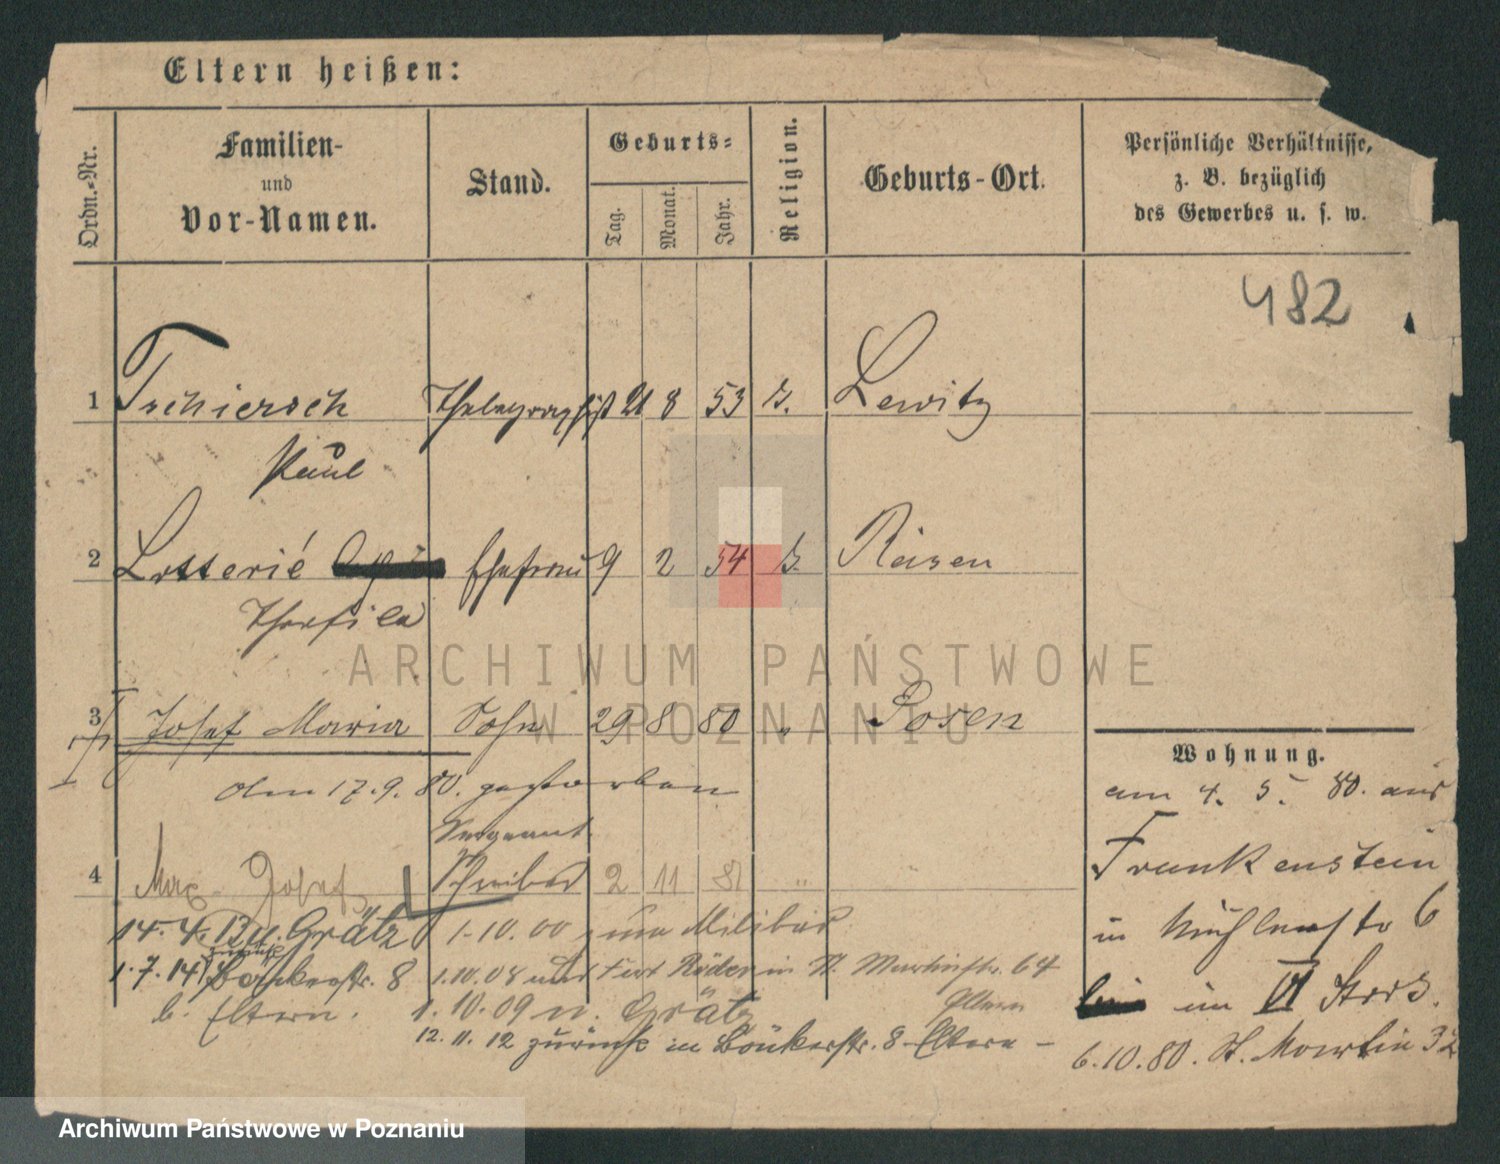 Eltern heißen:
Ordn.-Nr.
Familien-
und
Vor-Namen.
Stand.
Geburts-
Tag.
Monat.
Jahr.
Religion.
Geburts-Ort.
Persönliche Verhältnisse,
z. B. bezüglich
des Gewerbes u. s. w.
482
1 Tschiersch Thelegraphist 21 8 53 k. Lewitz
Paul
2 Lotterié Ehefrau 9 2 54 k. Reisen
Theofila
ARCHIWUM PAŃSTWOWE
W POZNANIU
3 Josef Maria Sohn 29 8 80 " Posen
Wohnung.
am 17.9.80. gestorben
am 4. 5. 80. aus
Sergeant
Frankenstein
4 Max Josef Schreiber 2 11 81 "
in Mühlenstr 6
14.4.13 n. Grätz 1.10.00 zum Militär
zurück
1.7.14 Bäckerstr. 8 1.10.08 und Röder in St. Martinstr. 64
im VI Stock.
b. Eltern. 1.10.09 n. Grätz Eltern
12.11.12 zurück in Bäckerstr. 8 Eltern -
6.10.80. St. Martin 32
Archiwum Państwowe w Poznaniu